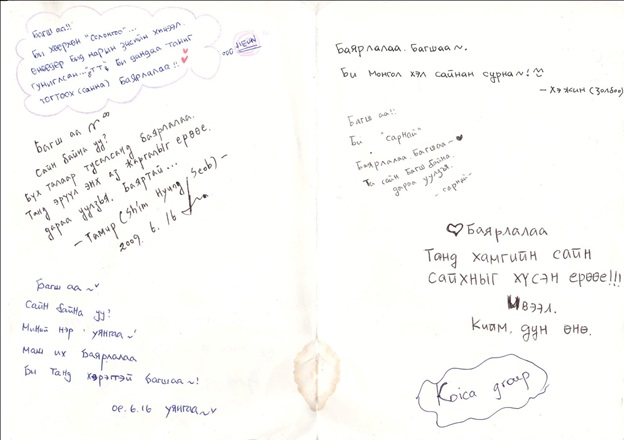 Багш аа!!
Би хөөрхөн "Солонгоо"...
өнөөдөр бүд нарын эцсийн хичээл.
гуниглсан...ㅜㅜ; Би дандаа таныг
тогтоох (санна) Баярлалаа!!
Багш аа
Сайн байна уу?
Бүх талаар тусалсанд баярлалаа.
Танд эрүүл энх аз жаргалыг ерөөе.
дараа уулзъя. Баяртай...
- Тамир (Shim Hyung Seob) -
2009. 6. 16
Багш аа~
Сайн байна уу?
Миний нэр уянгаа~!
маш их Баярлалаа
Би танд хэрэгтэй багшаа~!
09.6.16 уянгаа~
Баярлалаа. Багшаа~.
Би монгол хэл сайнан сурна~!
- Хэ жин (Золбоо)
Багш аа!!
Би "сарнай"
Баярлалаа Багшаа~
Та сайн багш байна.
дараа уулзъя.
- сарнай -
♡Баярлалаа
Танд хамгийн сайн
сайхныг хүсэн ерөөе!!!
Ивээл.
Ким. дун өнө.
Koica group